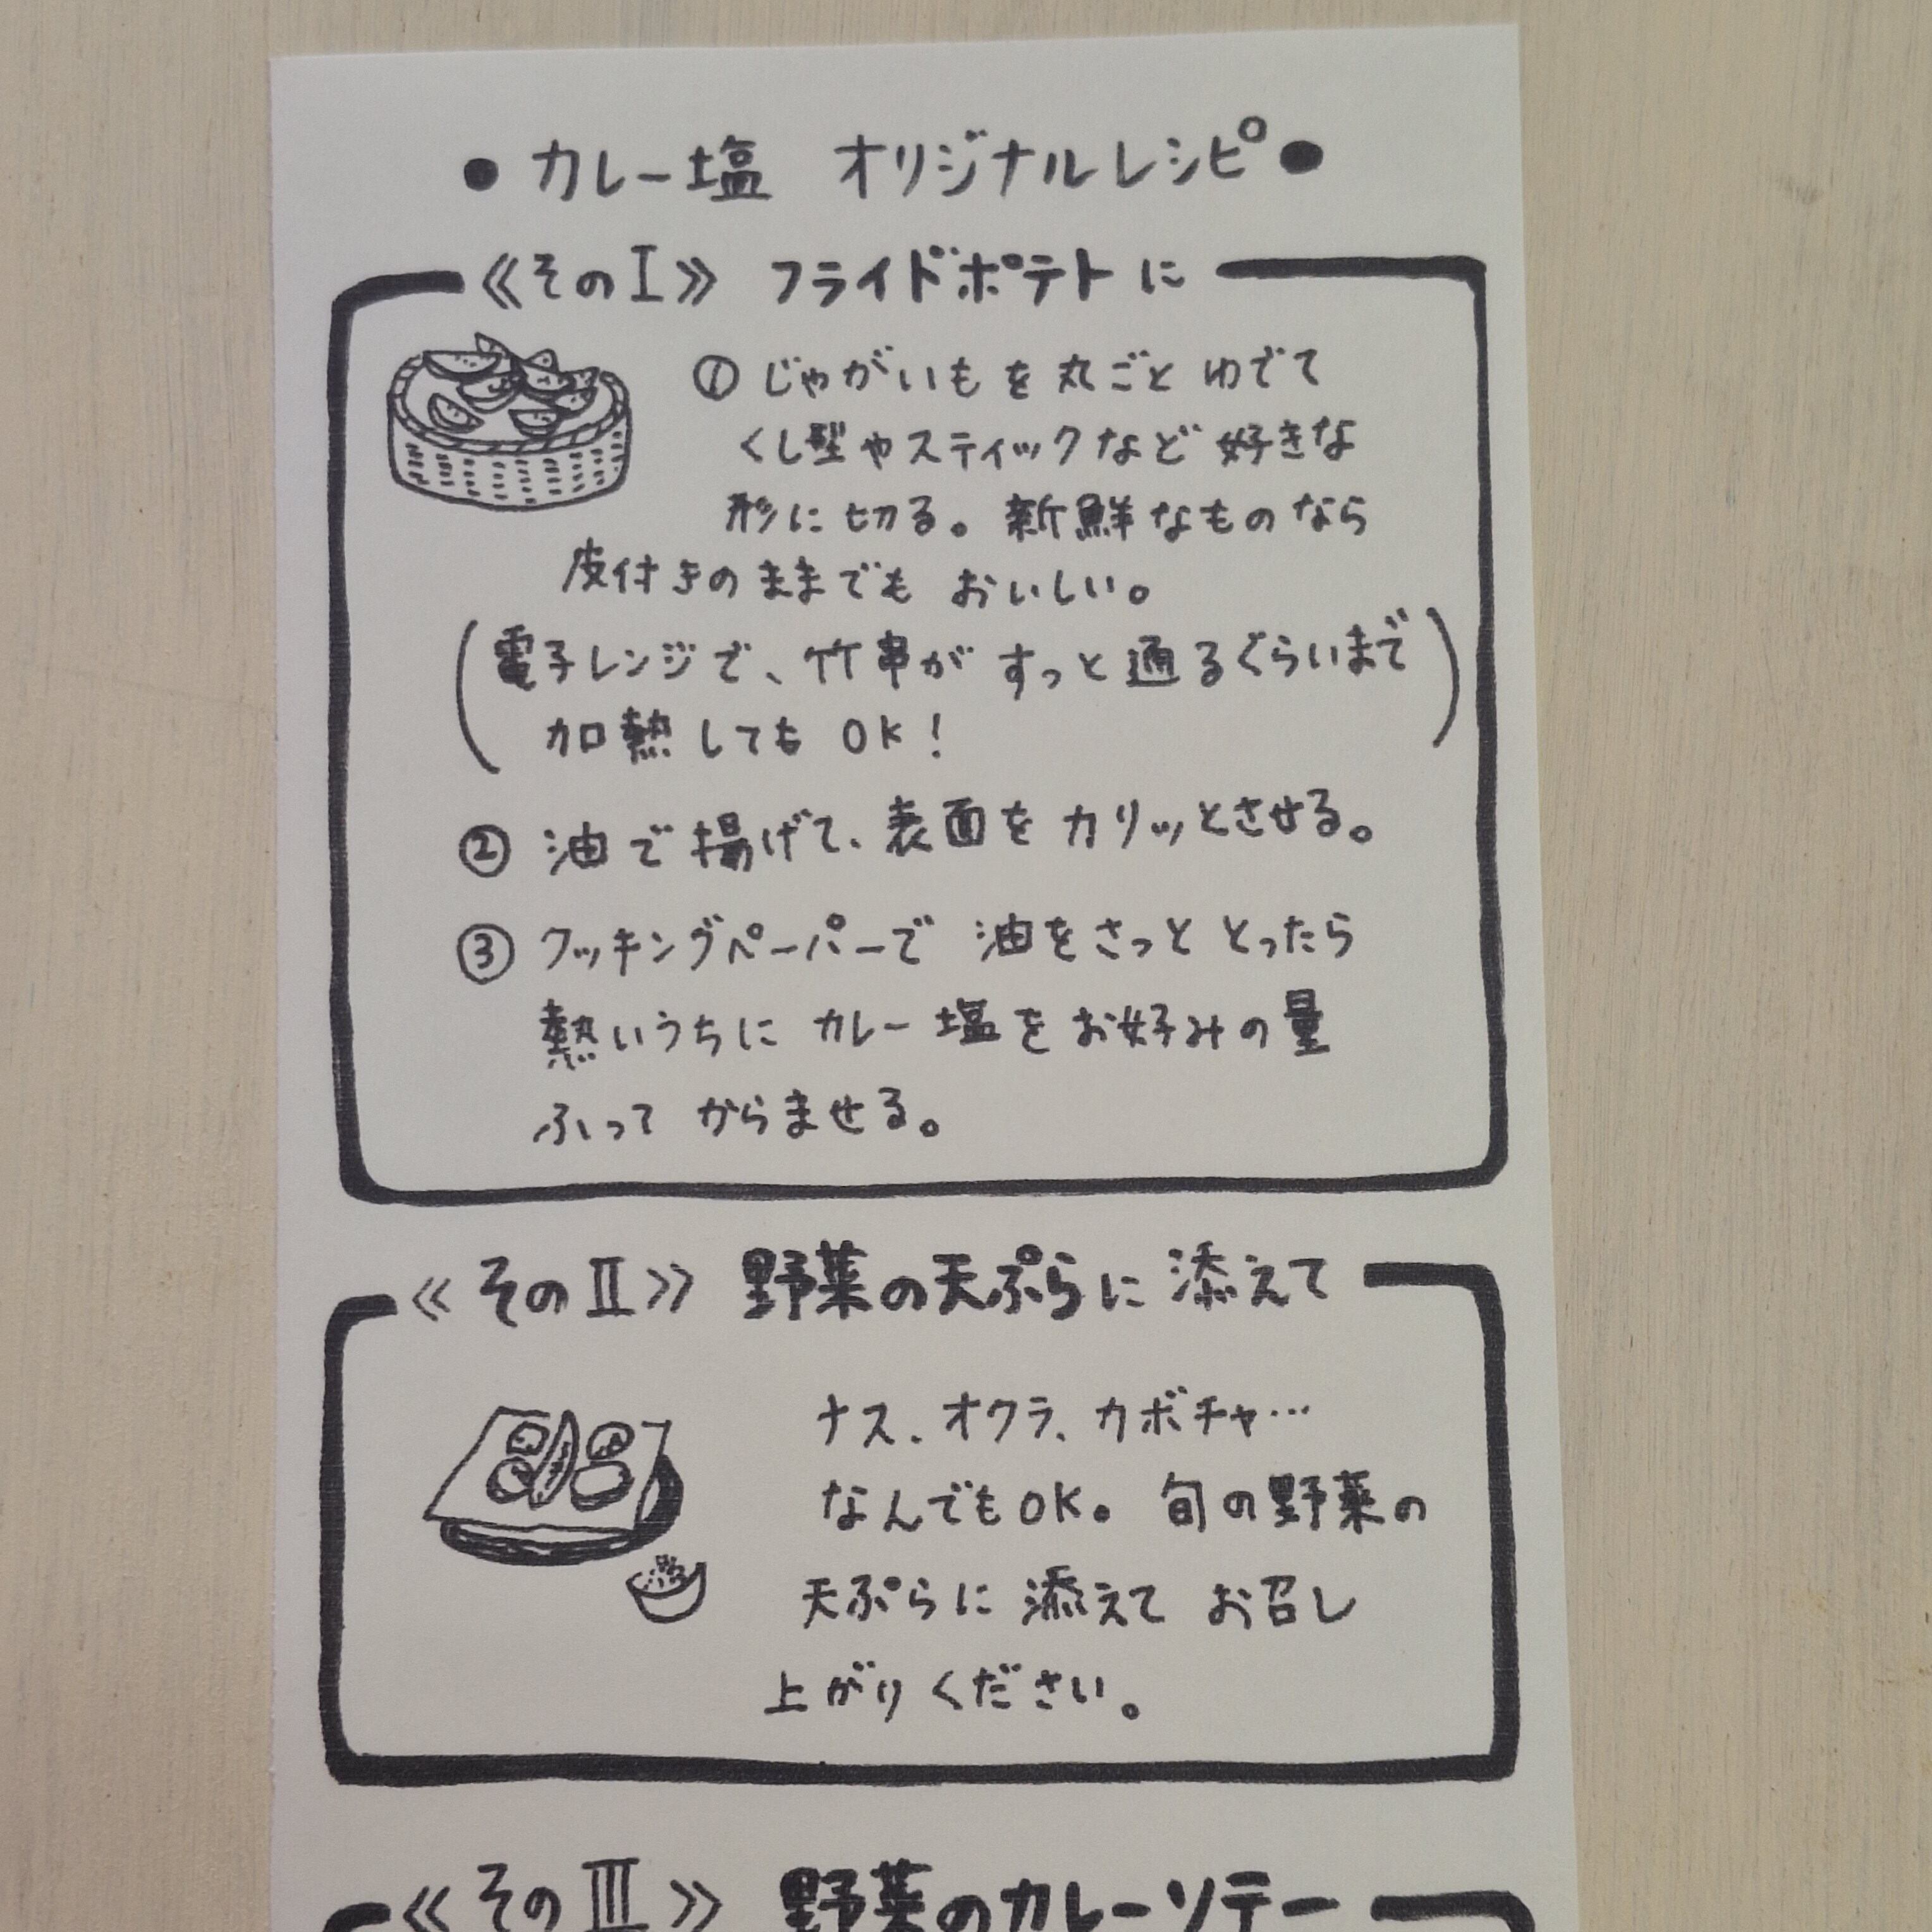 ● カレー塩 オリジナルレシピ ●
《そのⅠ》 フライドポテトに
① じゃがいもを丸ごとゆでて
くし型やスティックなど好きな
形に切る。新鮮なものなら
皮付きのままでも おいしい。
(電子レンジで、竹串がすっと通るぐらいまで
加熱しても OK!)
② 油で揚げて、表面をカリッとさせる。
③ クッキングペーパーで 油をさっと とったら
熱いうちに カレー塩をお好みの量
ふって からませる。
《そのⅡ》 野菜の天ぷらに 添えて
ナス、オクラ、カボチャ…
なんでもOK。 旬の野菜の
天ぷらに 添えて お召し
上がりください。
《そのⅢ》 野菜のカレーソテー